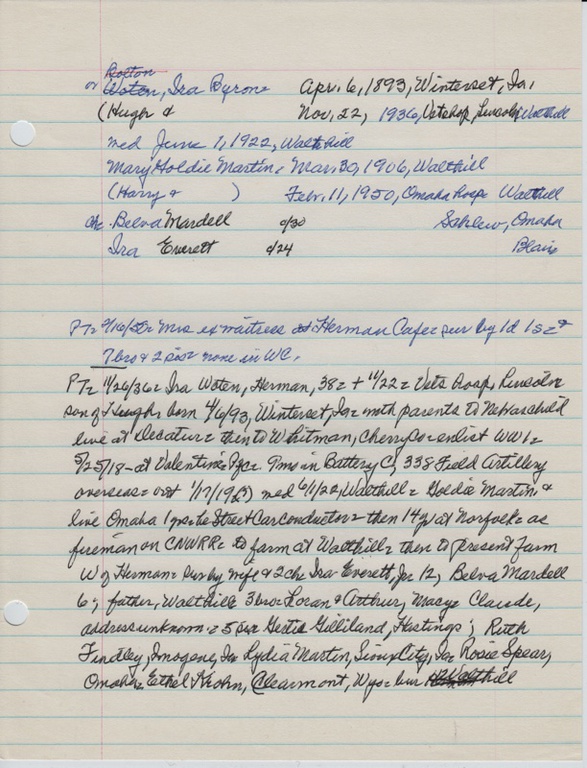 Wotton
or Woten, Ira Byron= Apr. 6, 1893, Winterset, Ia.
(Hugh & Nov. 22, 1936, Vetshosp, Lincoln, Walthill
med June 1, 1922, Walthill
Mary Goldie Martin= Mar. 30, 1906, Walthill
(Harry & ) Febr. 11, 1950, Omaha hosp= Walthill
ch. Belva Mardell c/30 Omaha
Ira Everett c/24 Blair
PT= 2/16/50= Mrs ex waitress at Herman Cafe= sur by 1d 1s= &
7bro & 2 sis= none in WC.
PT= 11/26/36= Ira Woten, Herman, 38= + 11/22= Vets hosp, Lincoln
son of Hugh= born 4/6/93, Winterset, Ia= with parents to Neb as child
live at Decatur= then to Whitman, Cherry Co= enlist WW1=
5/25/18- at Valentine= Pvc= 9ms in Battery C, 338 Field Artillery
overseas= out 1/17/19(?) med 6/1/22, Walthill= Goldie Martin= &
live Omaha 1 yr= he Street Car conductor= then 14 y at Norfolk= as
fireman on CNWRR= to farm at Walthill= then to present farm
W of Herman= sur by wife & 2 ch= Ira Everett, Jr 12, Belva Mardell
6; father, Walthill= 3 bro= Loran & Arthur, Macy= Claude,
address unknown= 5 sis= Gertie Gilliland, Hastings; Ruth
Findley, Imogene, Ia= Lydia Martin, Sioux City, Ia= Rosie Spear,
Omaha= Ethel Krohn, Clearmont, Wyo= bur Walthill